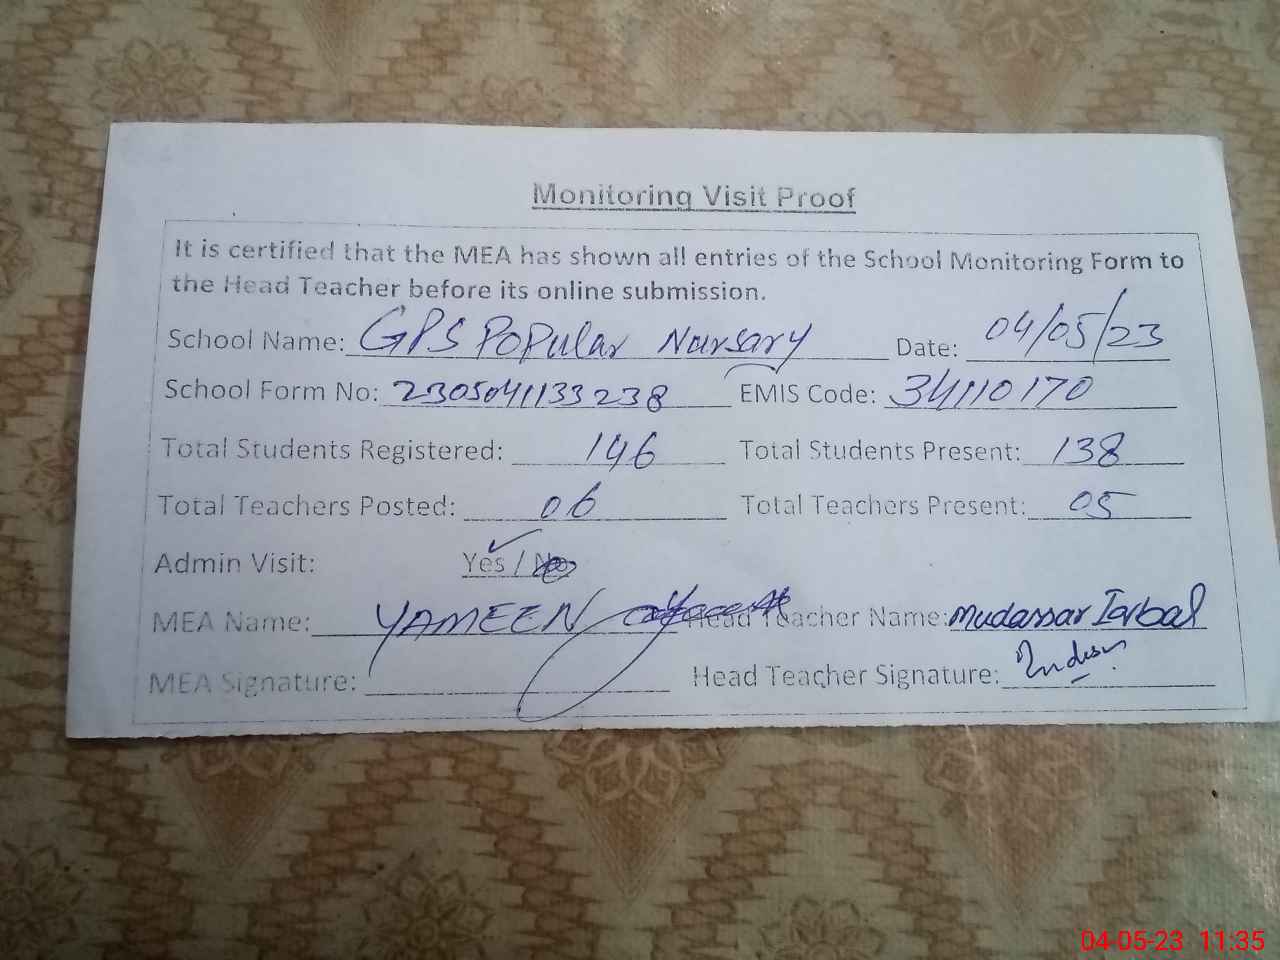 Monitoring Visit Proof
It is certified that the MEA has shown all entries of the School Monitoring Form to
the Head Teacher before its online submission.
School Name: GPS Popular Nursary Date: 04/05/23
School Form No: 2305041133238 EMIS Code: 34110170
Total Students Registered: 146 Total Students Present: 138
Total Teachers Posted: 06 Total Teachers Present: 05
Admin Visit: Yes / No
MEA Name: YAMEEN Head Teacher Name: Mudassar Iqbal
MEA Signature: Head Teacher Signature:
04-05-23 11:35